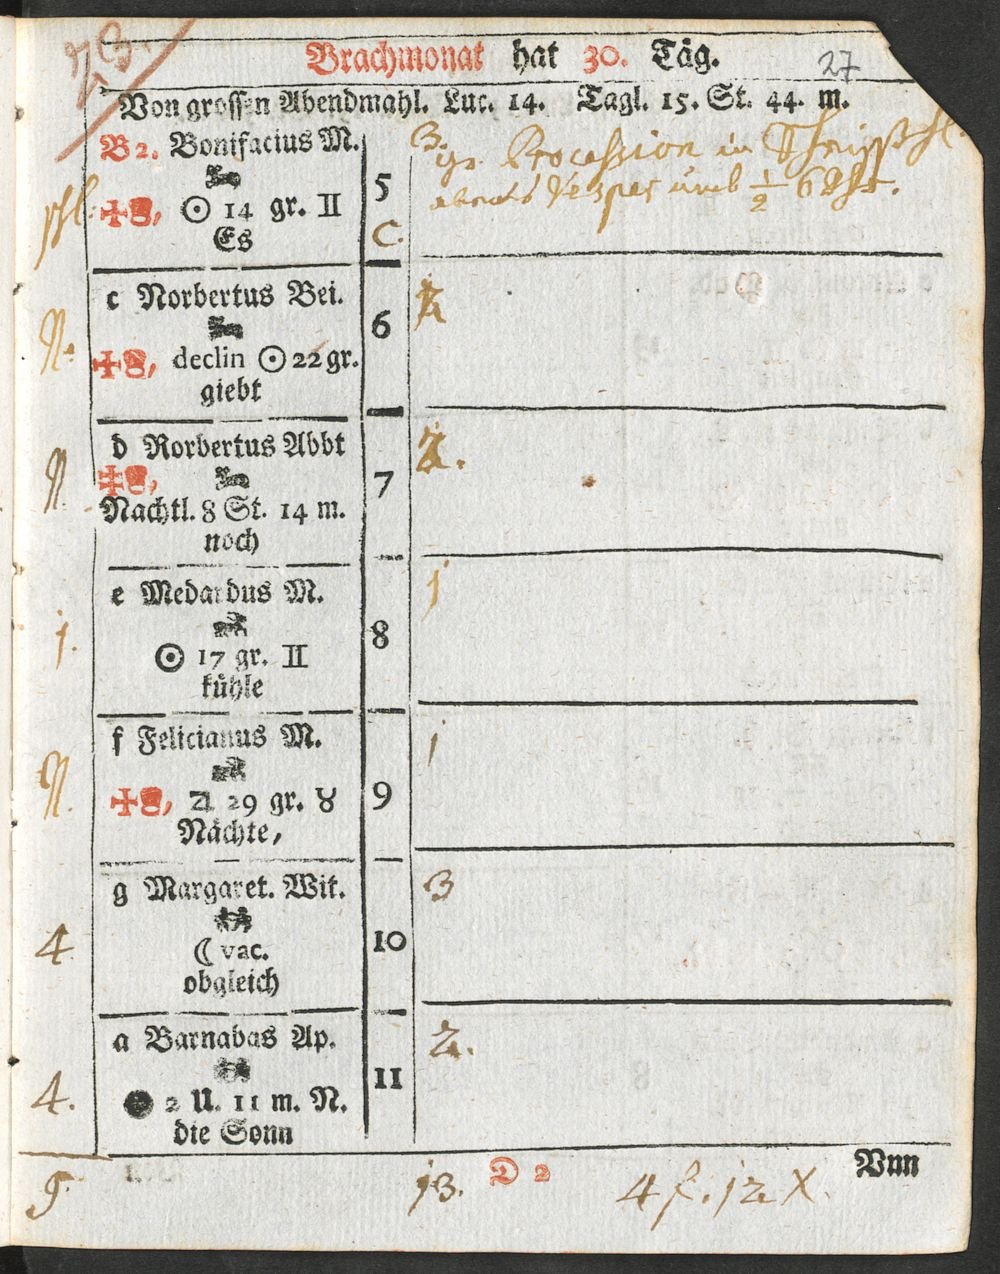 23.
Brachmonat hat 30. Täg.
27
Von grossen Abendmahl. Luc. 14. Tagl. 15. St. 44. m.
B 2. Bonifacius M.
☉ 14 gr. II
Es
5
C.
3.
gr. Procession in
abends Vesper umb ½ 6 Uhr.
c Norbertus Bei.
declin ☉ 22 gr.
giebt
6
N.
2
d Norbertus Abbt
Nachtl. 8 St. 14 m.
noch
7
N.
2.
e Medardus M.
☉ 17 gr. II
kühle
8
1.
1
f Felicianus M.
♃ 29 gr. ♉
Nächte,
9
N.
1
g Margaret. Wit.
☾ vac.
obgleich
10
4
3
a Barnabas Ap.
● 2 U. 11 m. N.
die Sonn
11
4.
2.
9.
13.
D 2
4 f. 12 X.
Vnn